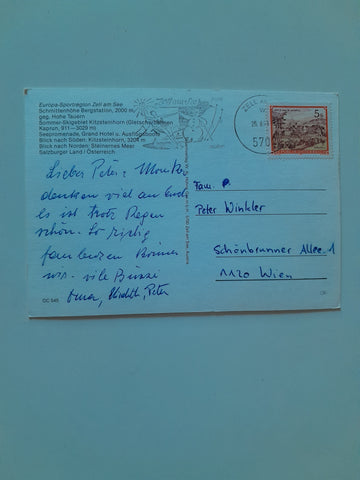 Europa-Sportregion Zell am See
Schmittenhöhe Bergstation, 2000 m
geg. Hohe Tauern
Sommer-Skigebiet Kitzsteinhorn (Gletscherbahnen
Kaprun, 911—3029 m)
Seepromenade, Grand Hotel u. Ausflugsboote
Blick nach Süden: Kitzsteinhorn, 3204 m
Blick nach Norden: Steinernes Meer
Salzburger Land / Österreich
Zell am See
ZELL AM
570
5 S
Lieber Peter + Monika
denken viel an euch
es ist trotz Regen
schön. So richtig
faulenzen können
wir. viele Bussi
Oma, Edith, Peter
CC 545
Fam. P.
Peter Winkler
Schönbrunner Allee 1
1120 Wien